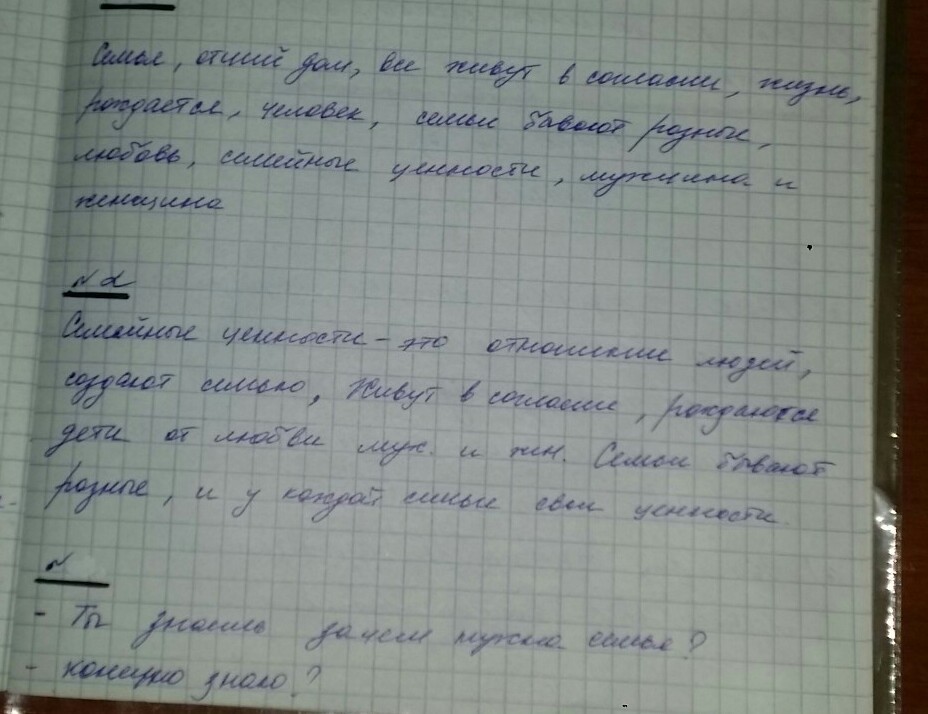 Семья, отчий дом, все живут в согласии, жизнь,
рождается, человек, семьи бывают разные,
любовь, семейные ценности, мужчина и
женщина
№ 2
Семейные ценности - это отношения людей,
создают семью, живут в согласии, рождаются
дети от любви муж. и жн. Семьи бывают
разные, и у каждой семьи свои ценности
№
- Ты знаешь зачем нужна семья?
- конечно знаю?